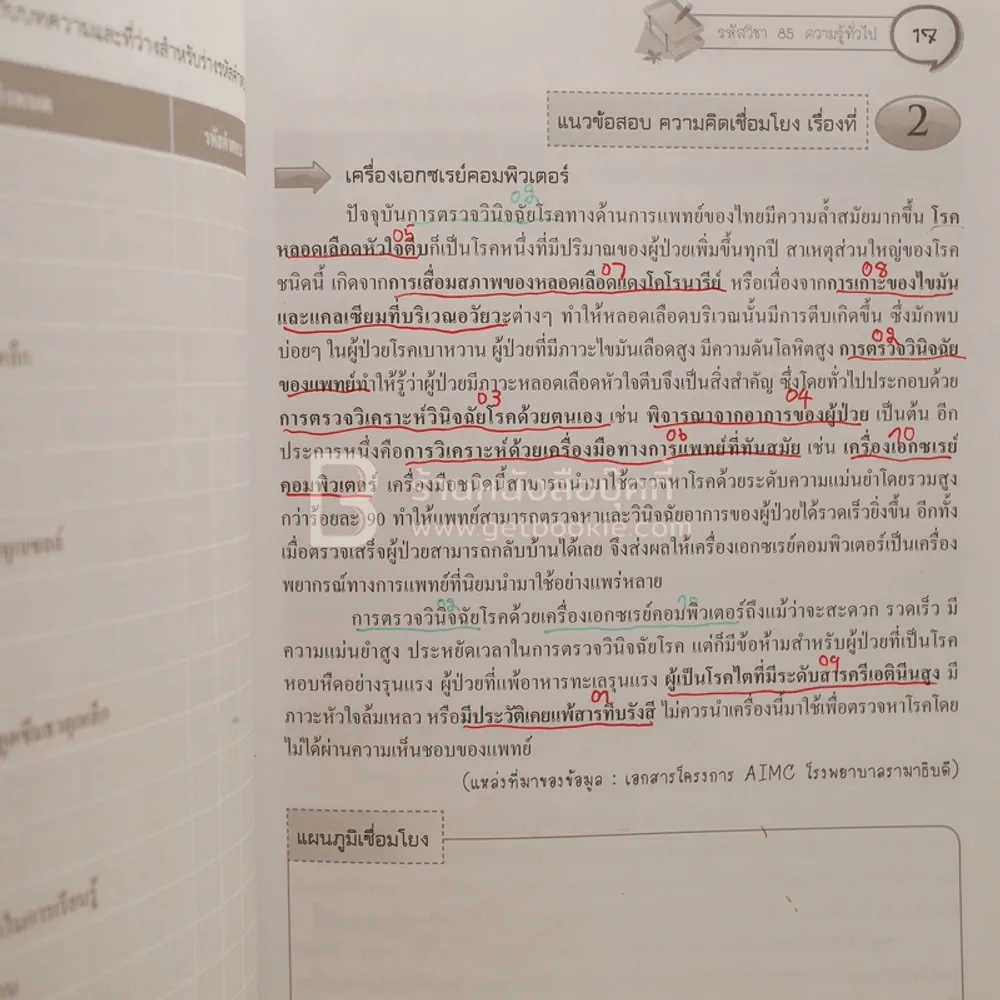 รหัสวิชา 85 ความรู้ทั่วไป 17
แนวข้อสอบ ความคิดเชื่อมโยง เรื่องที่ 2
เครื่องเอกซเรย์คอมพิวเตอร์
02
ปัจจุบันการตรวจวินิจฉัยโรคทางด้านการแพทย์ของไทยมีความล้ำสมัยมากขึ้น โรค
05
หลอดเลือดหัวใจตีบก็เป็นโรคหนึ่งที่มีปริมาณของผู้ป่วยเพิ่มขึ้นทุกปี สาเหตุส่วนใหญ่ของโรค
07 08
ชนิดนี้ เกิดจากการเสื่อมสภาพของหลอดเลือดแดงโคโรนารีย์ หรือเนื่องจากการเกาะของไขมัน
และแคลเซียมที่บริเวณอวัยวะต่างๆ ทำให้หลอดเลือดบริเวณนั้นมีการตีบเกิดขึ้น ซึ่งมักพบ
02
บ่อยๆ ในผู้ป่วยโรคเบาหวาน ผู้ป่วยที่มีภาวะไขมันเลือดสูง มีความดันโลหิตสูง การตรวจวินิจฉัย
ของแพทย์ทำให้รู้ว่าผู้ป่วยมีภาวะหลอดเลือดหัวใจตีบจึงเป็นสิ่งสำคัญ ซึ่งโดยทั่วไปประกอบด้วย
03 04
การตรวจวิเคราะห์วินิจฉัยโรคด้วยตนเอง เช่น พิจารณาจากอาการของผู้ป่วย เป็นต้น อีก
06 10
ประการหนึ่งคือการวิเคราะห์ด้วยเครื่องมือทางการแพทย์ที่ทันสมัย เช่น เครื่องเอกซเรย์
คอมพิวเตอร์ เครื่องมือชนิดนี้สามารถนำมาใช้ตรวจหาโรคด้วยระดับความแม่นยำโดยรวมสูง
กว่าร้อยละ 90 ทำให้แพทย์สามารถตรวจหาและวินิจฉัยอาการของผู้ป่วยได้รวดเร็วยิ่งขึ้น อีกทั้ง
เมื่อตรวจเสร็จผู้ป่วยสามารถกลับบ้านได้เลย จึงส่งผลให้เครื่องเอกซเรย์คอมพิวเตอร์เป็นเครื่อง
พยากรณ์ทางการแพทย์ที่นิยมนำมาใช้อย่างแพร่หลาย
02 10
การตรวจวินิจฉัยโรคด้วยเครื่องเอกซเรย์คอมพิวเตอร์ถึงแม้ว่าจะสะดวก รวดเร็ว มี
ความแม่นยำสูง ประหยัดเวลาในการตรวจวินิจฉัยโรค แต่ก็มีข้อห้ามสำหรับผู้ป่วยที่เป็นโรค
09
หอบหืดอย่างรุนแรง ผู้ป่วยที่แพ้อาหารทะเลรุนแรง ผู้เป็นโรคไตที่มีระดับสารครีเอตินีนสูง มี
ภาวะหัวใจล้มเหลว หรือมีประวัติเคยแพ้สารทึบรังสี ไม่ควรนำเครื่องนี้มาใช้เพื่อตรวจหาโรคโดย
ไม่ได้ผ่านความเห็นชอบของแพทย์
(แหล่งที่มาของข้อมูล : เอกสารโครงการ AIMC โรงพยาบาลรามาธิบดี)
แผนภูมิเชื่อมโยง
ร้านหนังสือบุ๊คกี้
www.getbookie.com
กับบทความและที่ว่างสำหรับร่างรหัสคำตอบ
รหัสคำตอบ